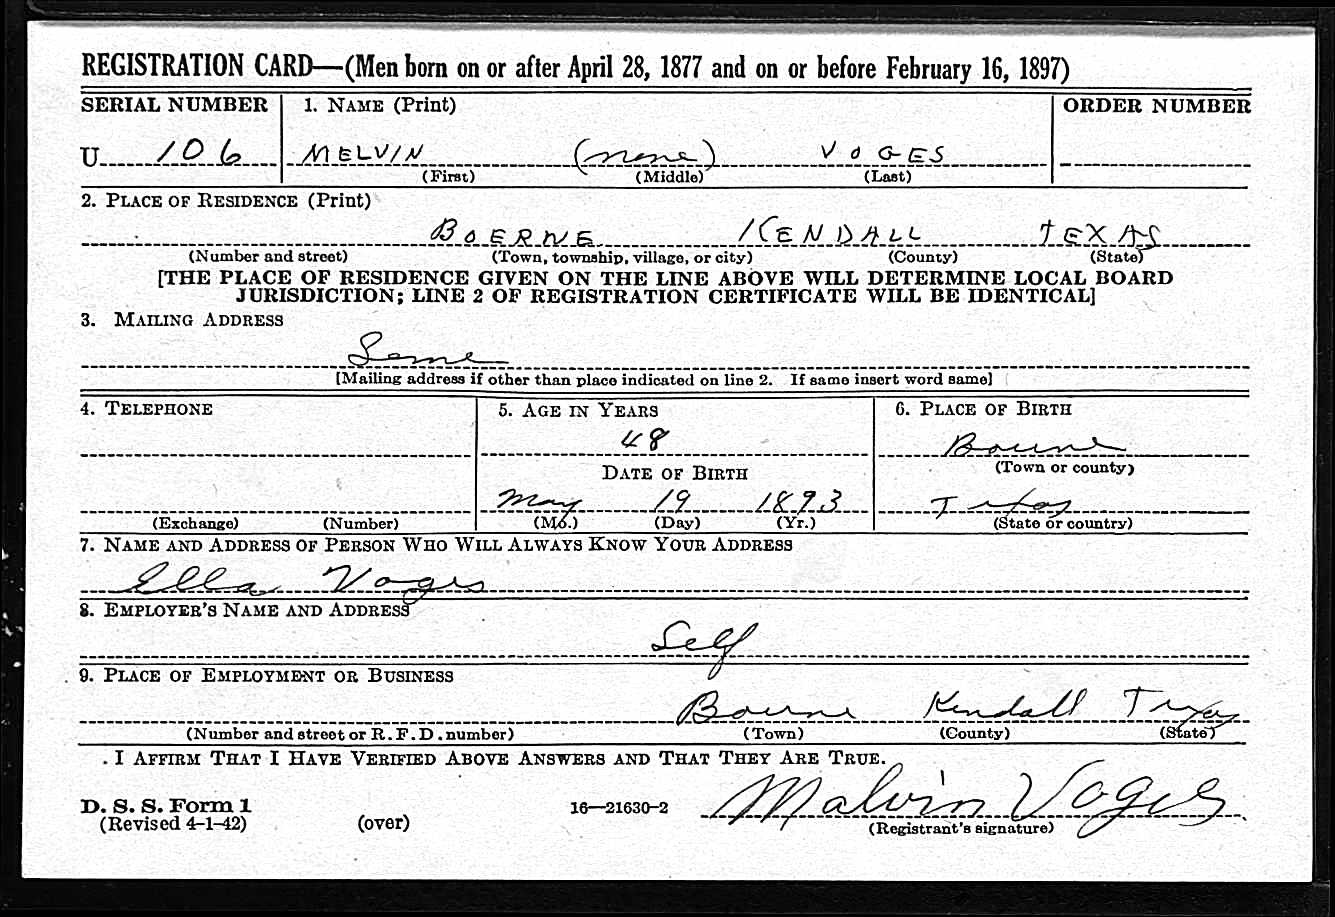 REGISTRATION CARD—(Men born on or after April 28, 1877 and on or before February 16, 1897)
SERIAL NUMBER 1. NAME (Print) ORDER NUMBER
U 106 MELVIN (none) VOGES
(First) (Middle) (Last)
2. PLACE OF RESIDENCE (Print)
BOERNE KENDALL TEXAS
(Number and street) (Town, township, village, or city) (County) (State)
[THE PLACE OF RESIDENCE GIVEN ON THE LINE ABOVE WILL DETERMINE LOCAL BOARD
JURISDICTION; LINE 2 OF REGISTRATION CERTIFICATE WILL BE IDENTICAL]
3. MAILING ADDRESS
Same
[Mailing address if other than place indicated on line 2. If same insert word same]
4. TELEPHONE 5. AGE IN YEARS 6. PLACE OF BIRTH
48 Boerne
DATE OF BIRTH (Town or county)
May 19 1893 Texas
(Exchange) (Number) (Mo.) (Day) (Yr.) (State or country)
7. NAME AND ADDRESS OF PERSON WHO WILL ALWAYS KNOW YOUR ADDRESS
Ella Voges
8. EMPLOYER'S NAME AND ADDRESS
Self
9. PLACE OF EMPLOYMENT OR BUSINESS
Boerne Kendall Texas
(Number and street or R. F. D. number) (Town) (County) (State)
I AFFIRM THAT I HAVE VERIFIED ABOVE ANSWERS AND THAT THEY ARE TRUE.
D. S. S. Form 1 16—21630-2 Malvin Voges
(Revised 4-1-42) (over) (Registrant's signature)